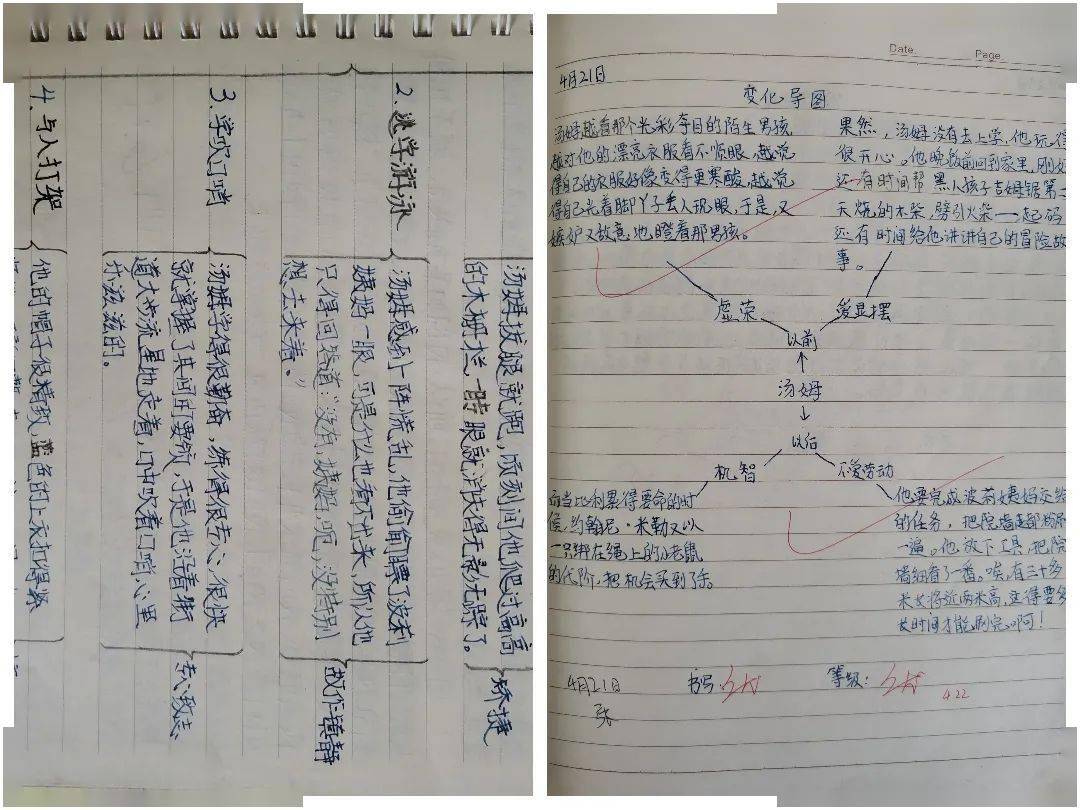 汤姆拔腿就跑，顷刻间他爬过高高
的木栅栏，一眨眼就消失得无影无踪了。
矫捷
2.逃学游泳
汤姆感到一阵慌乱，他偷偷瞟了波莉
姨妈一眼，可是什么也看不出来，所以他
只得回答道：“没有，姨妈，呃，没特别
想去来着。”
故作镇静
3.学吹口哨
汤姆学得很勤奋，练得很专心，很快
就掌握了其间的要领，于是他沿着街
道大步流星地走着，口中吹着口哨心里
升滋滋的。
专心致志
4.与人打架
他的帽子很精致，蓝色的上衣扣得紧
Date Page
4月21日
变化导图
汤姆越看那个光彩夺目的陌生男孩，
越对他的漂亮衣服看不顺眼，越觉
得自己的衣服好像变得更寒酸，越觉
得自己光着脚丫子丢人现眼，于是，又
嫉妒又故意地瞪着那男孩。
果然，汤姆没有去上学，他玩得
很开心。他晚饭前回到家里，刚好
还有时间帮黑人孩子吉姆锯第二
天烧的木柴，劈引火柴——起码
还有时间给他讲讲自己的冒险故
事。
虚荣
爱显摆
以前
汤姆
以后
机智
不爱劳动
而当比利累得要命的时
候，约翰尼·米勒又以
一只拴在绳上的小老鼠
的代价，把机会买到了手。
他要完成波莉姨妈交给
的任务，把院墙
一遍。他放下工具，把院
墙细看了一番。唉，有三十多
米长将近两米高，这得要多
长时间才能刷完啊！
4月21日
书写：
等级：
4.22
张